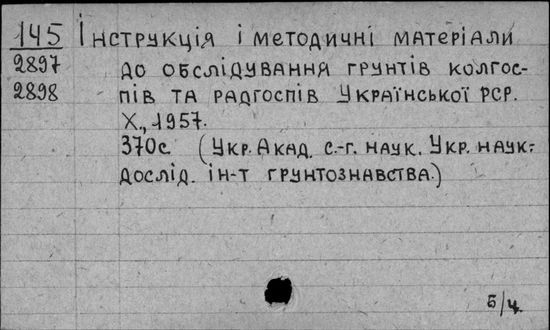 145 Інструкція і методичні матеріали
2897 до обслідування грунтів колгос-
2898 пів та радгоспів Української РСР.
Х., 1957.
370с. (Укр. Акад. с.-г. наук. Укр. наук.-
дослід. ін-т грунтознавства.)
Б/ч.